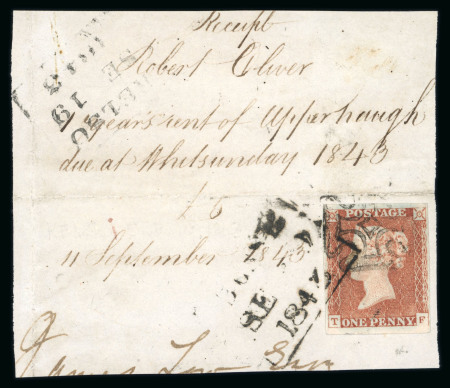 Receipt
Robert Oliver
1 years rent of Upperhaugh
due at Whitsunday 1843
£6
11 September 1843
James
SE
19
SE
1843
POSTAGE
ONE PENNY
T F